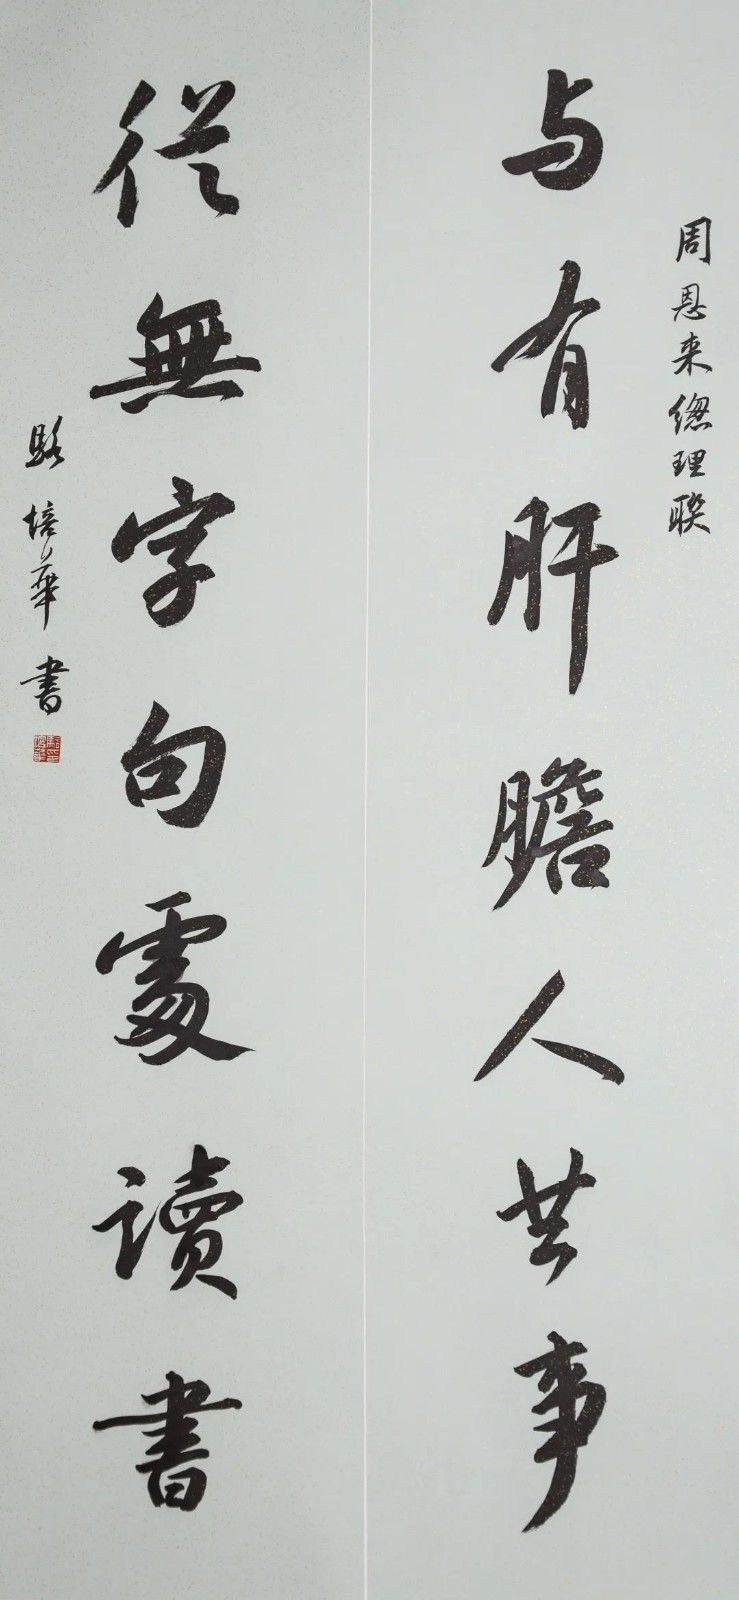 周恩来總理联
与有肝膽人共事
從無字句處讀書
駱培華書